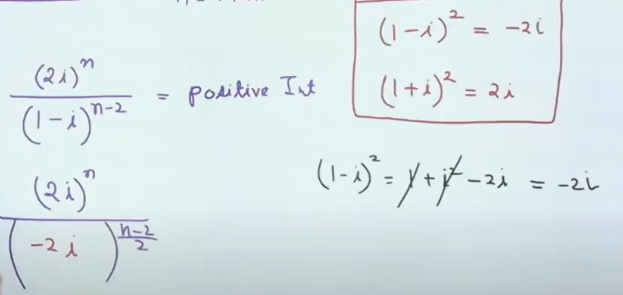 (1-i)² = -2i
(2i)ⁿ / (1-i)ⁿ⁻² = positive Int
(1+i)² = 2i
(1-i)² = 1 + i² - 2i = -2i
(2i)ⁿ / (-2i)^((n-2)/2)